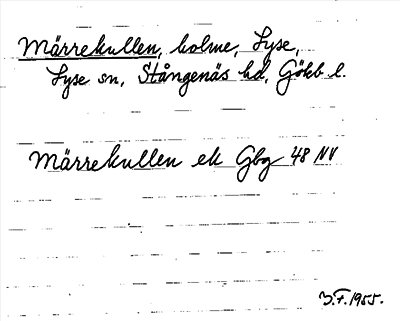 Märrekullen, holme, Lyse,
Lyse sn, Stångenäs hd, Göteb l.
Märrekullen ek Gbg 48 NV
1955.